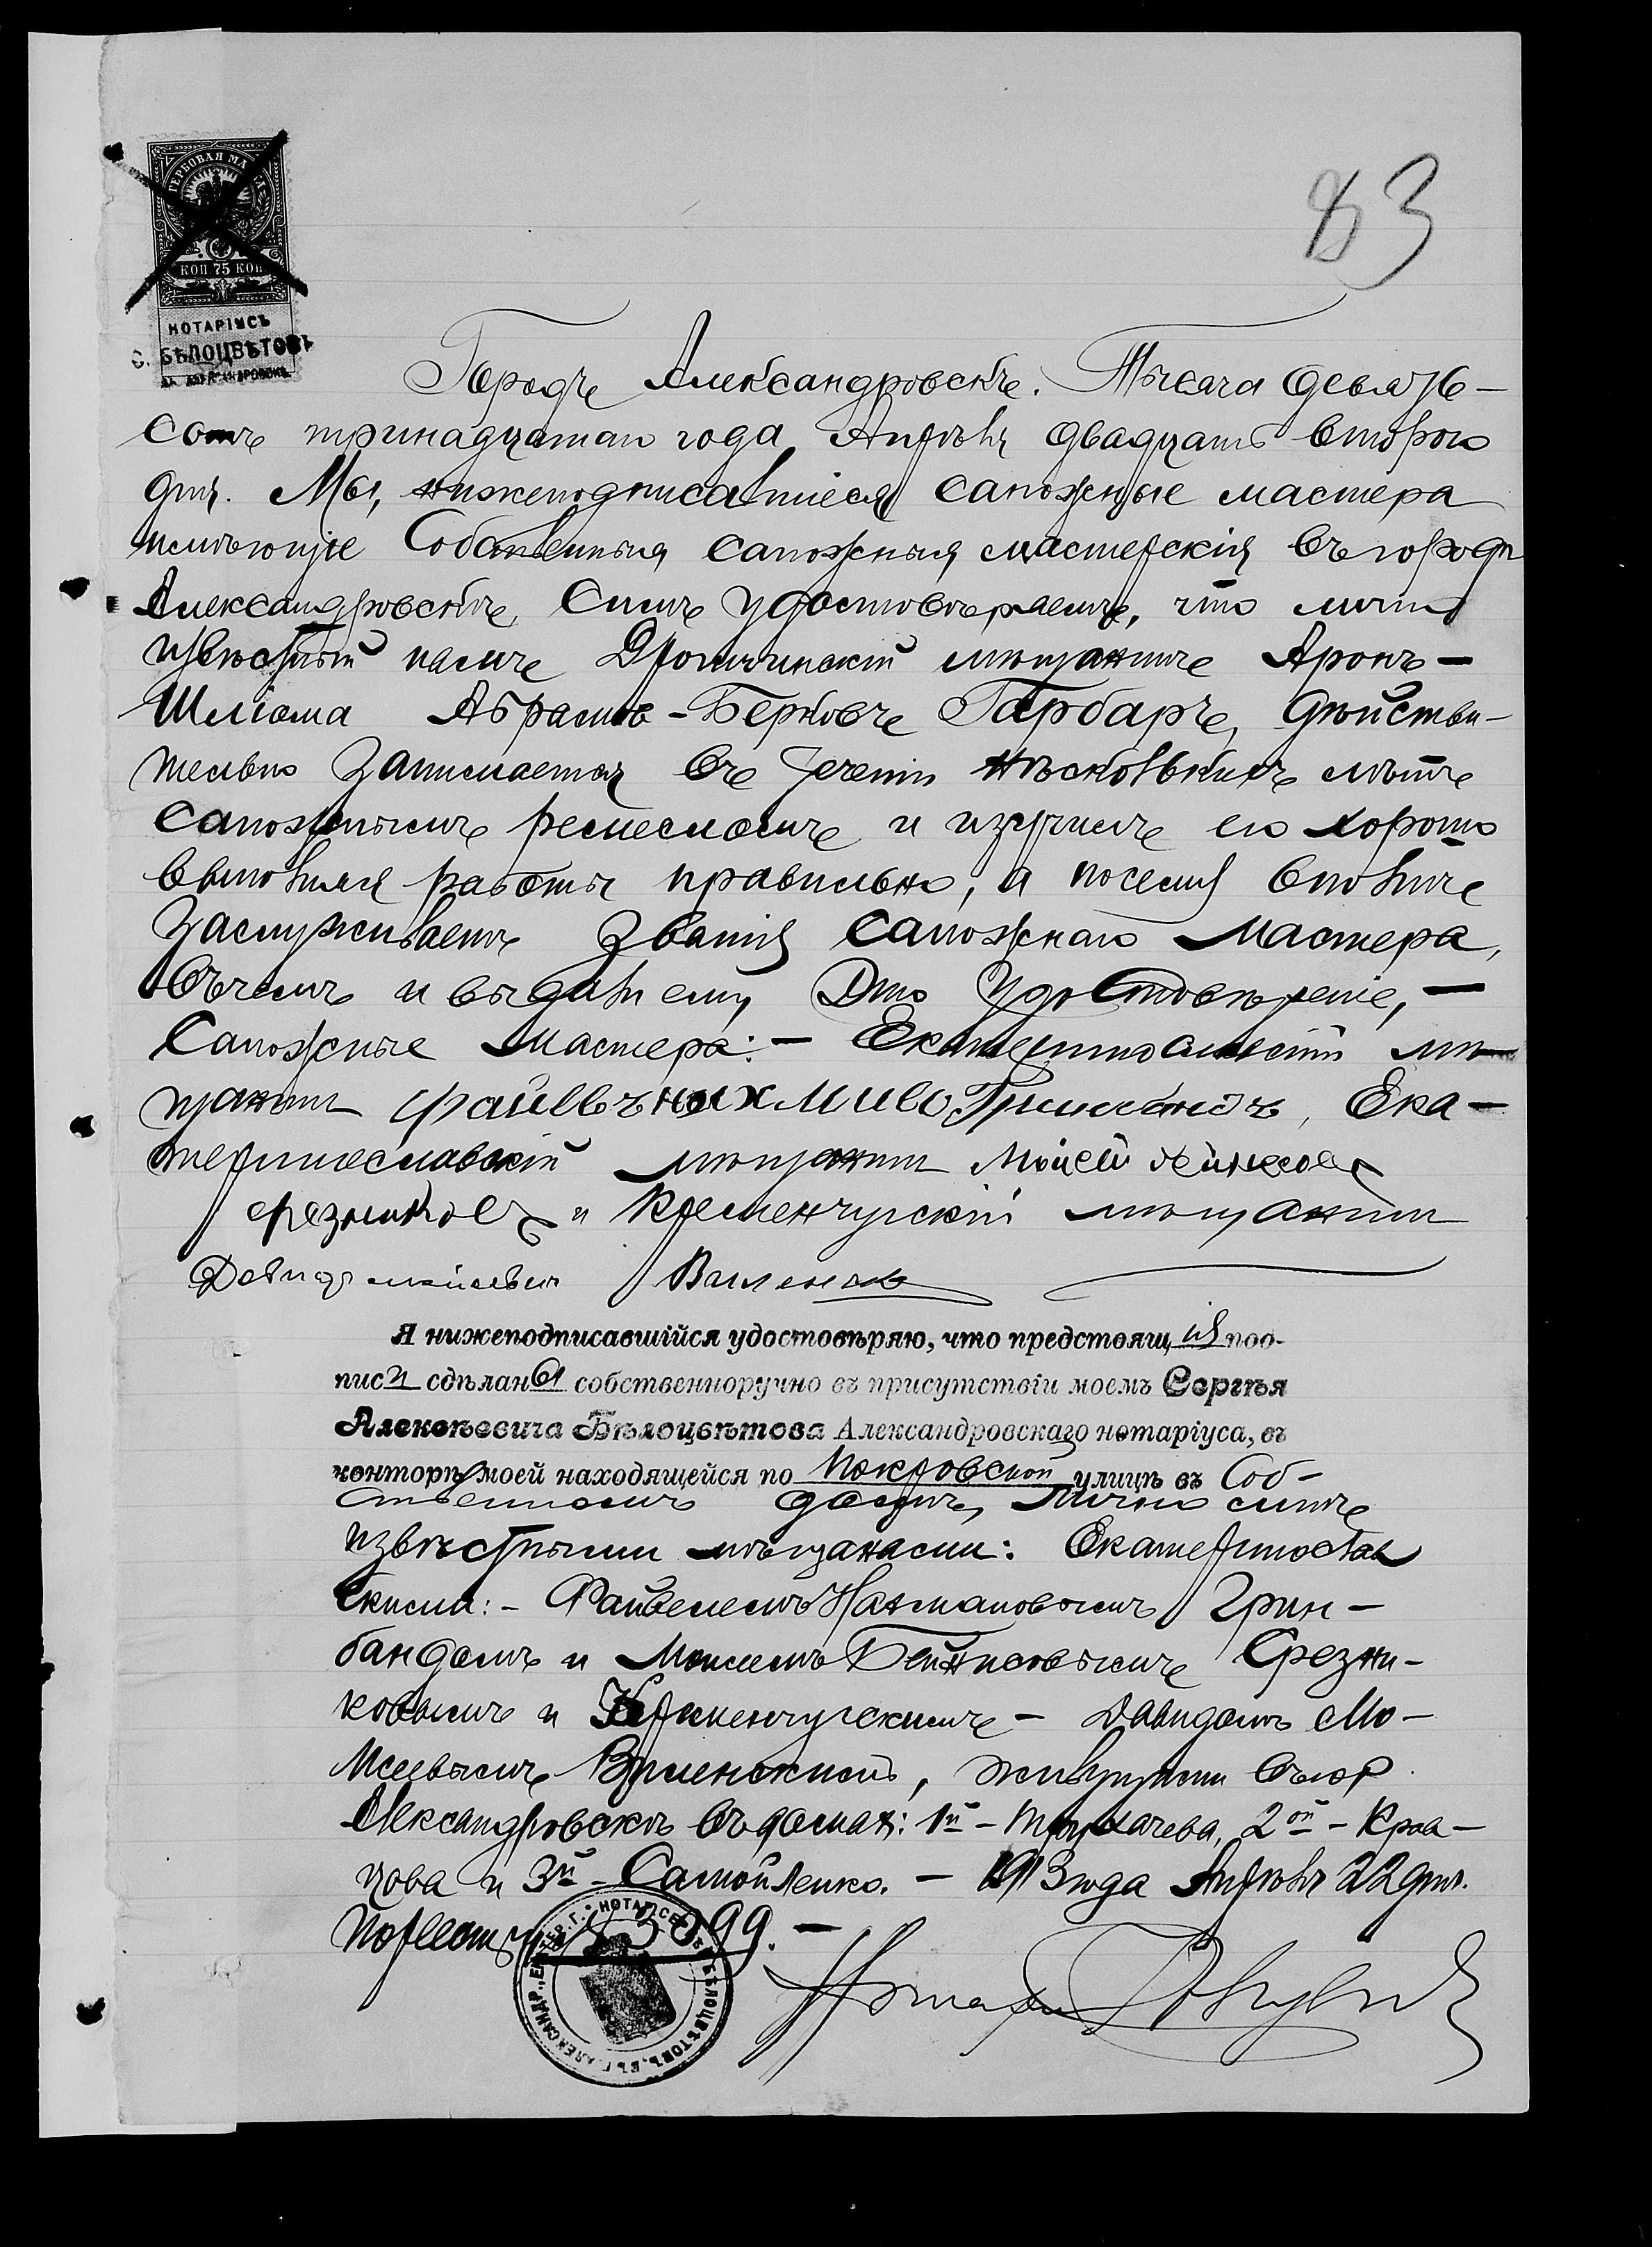 83
ГЕРБОВАЯ МАРКА
КОП 75 КОП
НОТАРІУСЪ
С. БѢЛОЦВѢТОВЪ
Городъ Александровскъ. Тысяча девять-
сотъ тринадцатаго года Апрѣля двадцать второго
дня. Мы, нижеподписавшіеся сапожные мастера
имѣющіе собственныя сапожныя мастерскія въ городѣ
Александровскѣ, симъ удостовѣряемъ, что лично
извѣстный намъ мѣщанинъ Аронъ-
Шліома Абрамъ-Берковъ Гарбаръ, дѣйстви-
тельно занимается въ теченіи нѣсколькихъ лѣтъ
сапожнымъ ремесломъ и изучилъ его хорошо
выполняя работы правильно, а посему вполнѣ
заслуживаетъ званія сапожнаго мастера,
въ чемъ и выдали ему это удостовѣреніе, —
Сапожные мастера: — Екатеринославскій мѣ-
щанинъ Файвель Ека-
теринославскій мѣщанинъ Мойсей
Срезниковъ и Кременчугскій мѣщанинъ
Давидъ Мойсеевичъ Виленскій
Я нижеподписавшійся удостовѣряю, что предстоящія под-
писи сдѣланы собственноручно въ присутствіи моемъ Сергѣя
Алексѣевича Бѣлоцвѣтова Александровскаго нотаріуса, въ
конторѣ моей находящейся по Покровской улицѣ въ Соб-
ственномъ домѣ, лично мнѣ
извѣстными мѣщанами: Екатеринослав
скими: - Файвелемъ Нахмановымъ Грин-
бандомъ и Моисеемъ Бейнисовымъ Срезни-
ковымъ и Кременчугскимъ - Давидомъ Мо-
исеевымъ Виленскимъ, живущими въ гор.
Александровскѣ въ домахъ: 1й - Трухачева, 2ой - Крав-
цова и 3й - Самойленко. - 1913 года Апрѣля 22 дня.
По реестру №
Нотаріусъ